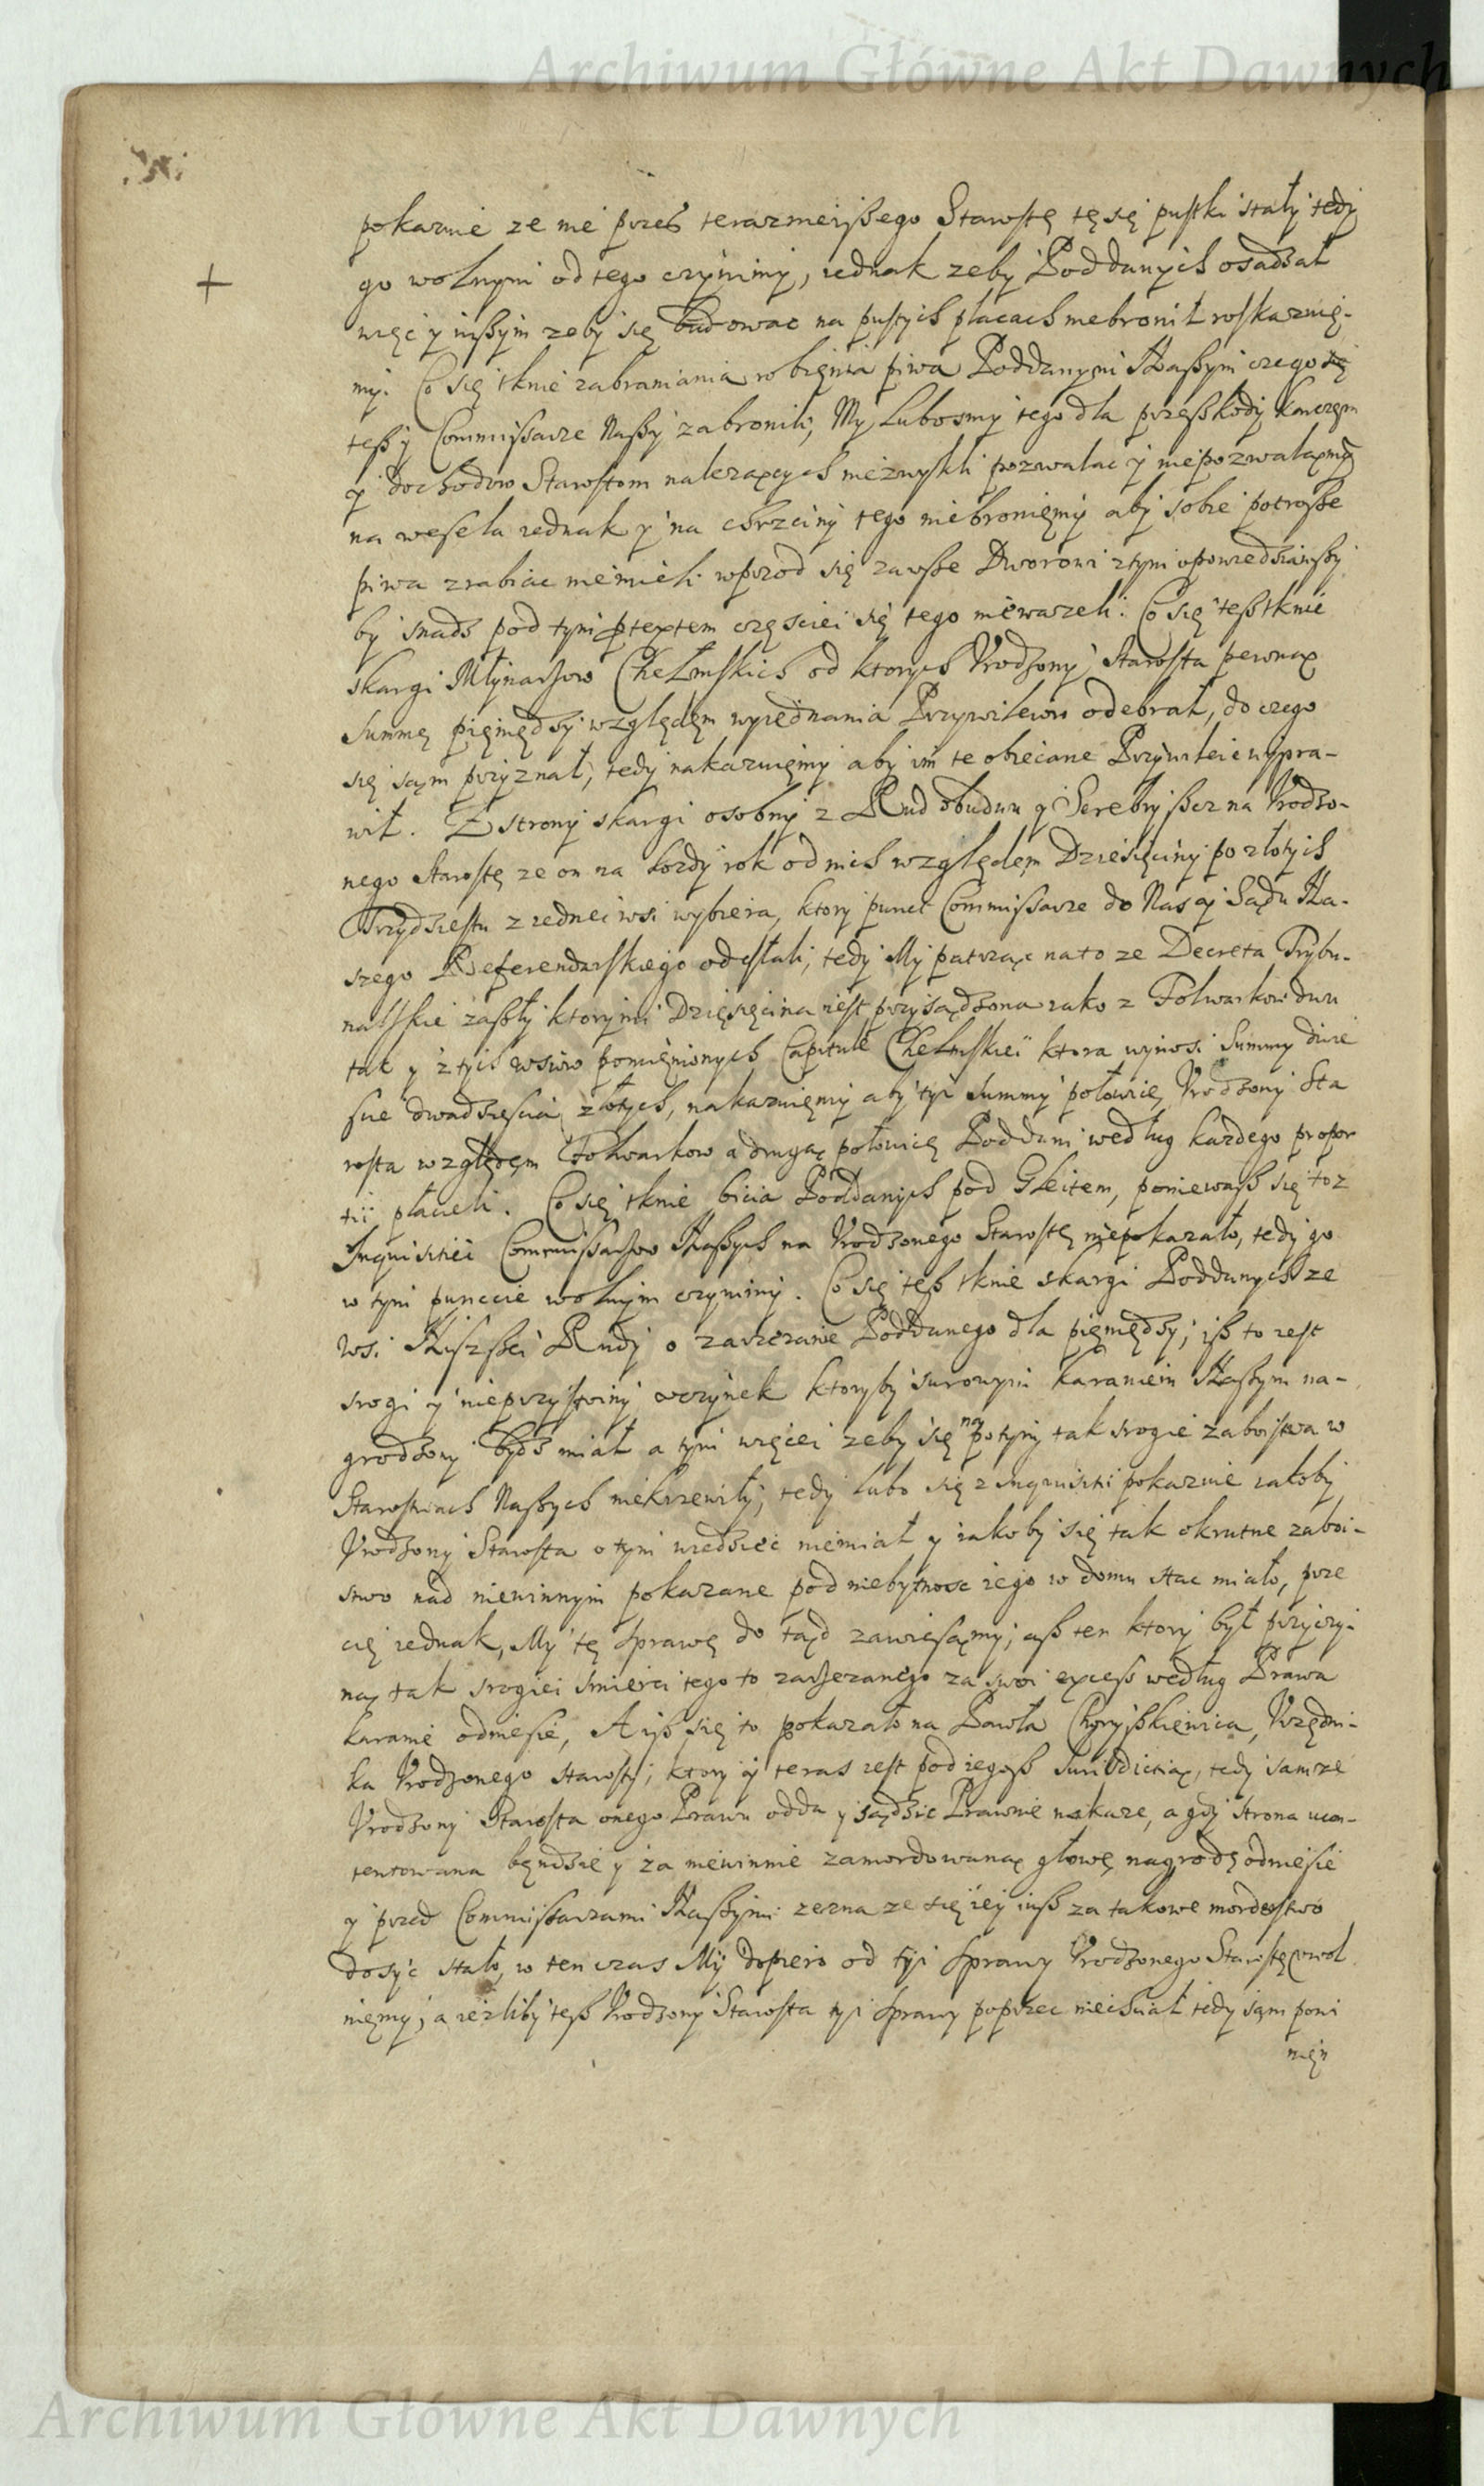 Archiwum Główne Akt Dawnych
pokazuie ze nie przes teraznieyszego Starostę tę się pustki stały tedy
+
go wolnym od tego czyniemy, iednak zeby Poddanych osadzał
więc y inszym zeby się budowac na pustych placach niebronił roskazuię-
my. Co się tknie zabraniania robięnia piwa Poddanym Naszym czego się
tesz y Commissarze Naszy zabronili, My lubosmy tego dla przeszkody karczęm
y dochodow Starostom nalezących niezwykli pozwalac y niepozwalamy
na wesela iednak y na chrzciny tego niebroniemy aby sobie potrosze
piwa zrabiac niemieli wprzod się zawsze Dworowi z tym opowiedziawszy
by snadz pod tym ptextem częsciei się tego niewazeli. Co się tesz tknie
skargi Młynarzow Chełmskich od ktorych Vrodzony Starosta pewną
Summę pięniędzy względęm wyiednania Przywileiow odebrał, do czego
się sam przyznał, tedy nakazuięmy aby im te obiecane Przywileie wypra-
wił. Z strony skargi osobny z Rud obudwu y Serebryszcz na Vrodzo-
nego Starostę ze on na kozdy rok od nich względęm Dziesięciny po złotych
Trzydziestu z iednei wsi wybiera, ktory punct Commissarze do Nas y Sądu Na-
szego Referendarskiego odesłali, tedy My patrząc na to ze Decreta Trybu-
nalskie zaszły ktorymi Dzięsięcina iest przysądzona iako z Folwarkow dwu
tak y z tych wsiow pomięnionych Capitule Chełmskiei ktora wynosi Summy dwie
scie dwadziescia złotych, nakazuięmy aby tyi Summy połowicę Vrodzony Sta
rosta względęm Folwarkow a drugą połowicę Poddani według kazdego propor
tii płacili. Co się tknie bicia Poddanych pod Gleitem, poniewasz się to z
Inquisitiei Commissarzow Naszych na Vrodzonego Starostę niepokazało, tedy go
w tym punccie wolnym czyniemy. Co się tesz tknie skargi Poddanych ze
wsi Niszszei Rudy o zarzezanie Poddanego dla pięniędzy, isz to iest
srogi y nieprzystoiny uczynek ktoryby surowym karaniem Naszym na-
grodzony bydz miał a tym więcei zeby się na potym tak srogie zaboistwa w
Starostwach Naszych niekrzewiły, tedy lubo się z inquisitii pokazuie iakoby
Vrodzony Starosta o tym wiedziec niemiał y iakoby się tak okrutne zaboi-
stwo nad niewinnym pokazane pod niebytnosc iego w domu stac miało, prze
cię iednak, My tę sprawę do tąd zawiesząmy, asz ten ktory był przyczy-
ną tak srogiei smierci tego to zarzezanego za swoi excess według Prawa
karanie odniesie, A isz się to pokazało na Pawła Chryszkiewica, Vrzędni-
ka Vrodzonego Starosty, ktory y teras iest pod iegosz Iurisdictią, tedy samze
Vrodzony Starosta onego Prawu odda y sądzic Prawnie nakaze, a gdy strona ucon-
tentowana będzie y za niewinnie zamordowaną głowę nagrodę odniesie
y przed Commissarzami Naszymi zezna ze się iey iusz za takowe morderstwo
dosyc stało, w ten czas My dopiero od tyi sprawy Vrodzonego Starostę uwol
nięmy, a iezliby tesz Vrodzony Starosta tyi sprawy poprzec niechciał tedy sąm powi
nięn
Archiwum Główne Akt Dawnych